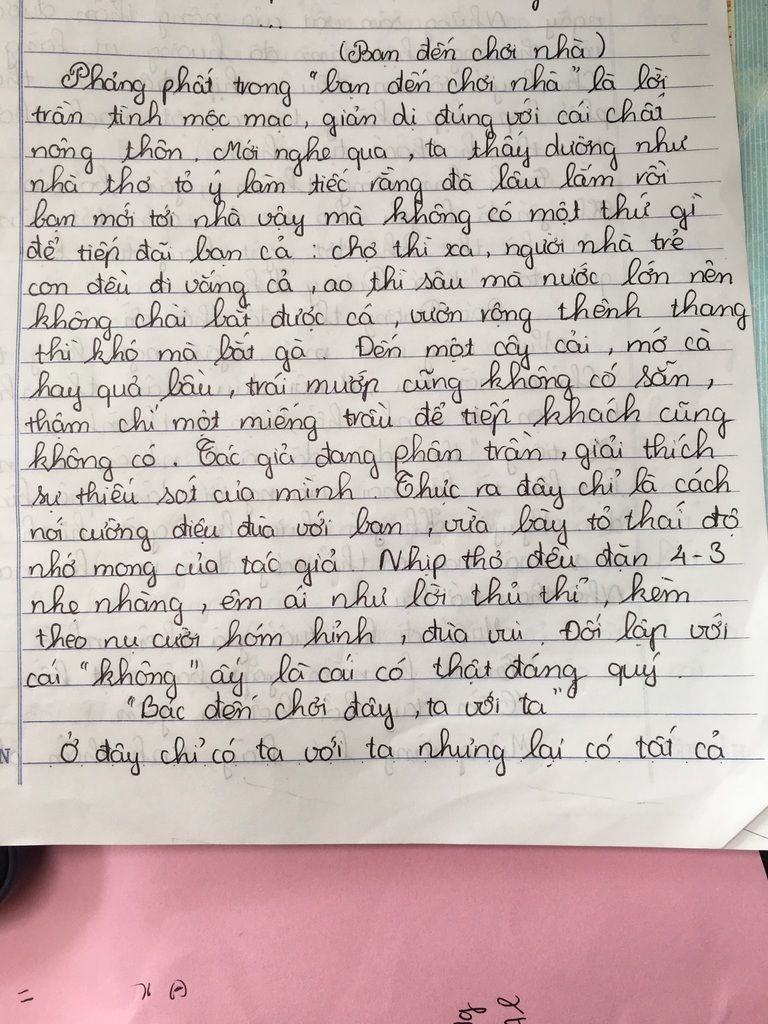 ...
(Bạn đến chơi nhà)
Phảng phất trong "bạn đến chơi nhà" là lời
trần tình mộc mạc, giản dị đúng với cái chất
nông thôn. Mới nghe qua, ta thấy dường như
nhà thơ tỏ ý làm tiếc rằng đã lâu lắm rồi
bạn mới tới nhà vậy mà không có một thứ gì
để tiếp đãi bạn cả : chợ thì xa, người nhà trẻ
con đều đi vắng cả, ao thì sâu mà nước lớn nên
không chài bắt được cá, vườn rộng thênh thang
thì khó mà bắt gà. Đến một cây cải, mớ cà
hay quả bầu, trái mướp cũng không có sẵn,
thậm chí một miếng trầu để tiếp khách cũng
không có. Tác giả đang phân trần, giải thích
sự thiếu sót của mình. Thực ra đây chỉ là cách
nói cường điệu đùa với bạn, vừa bày tỏ thái độ
nhớ mong của tác giả. Nhịp thơ đều đặn 4-3
nhẹ nhàng, êm ái như lời thủ thỉ, kèm
theo nụ cười hóm hỉnh, đùa vui. Đối lập với
cái "không" ấy là cái có thật đáng quý.
"Bác đến chơi đây, ta với ta"
Ở đây chỉ có ta với ta nhưng lại có tất cả
N